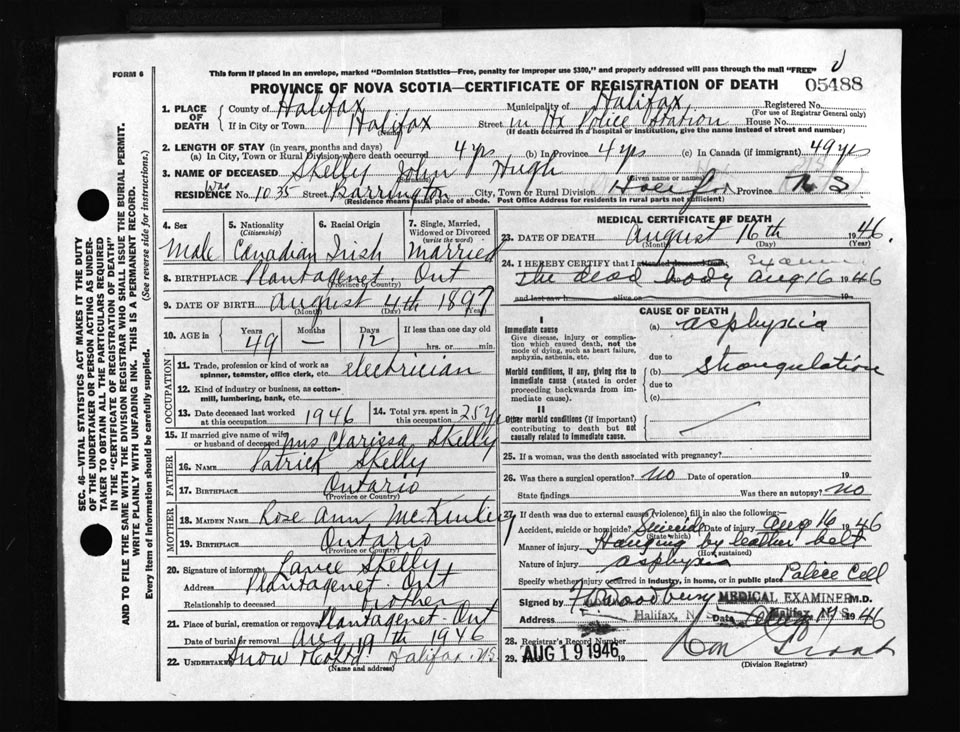 FORM 6
This form if placed in an envelope, marked "Dominion Statistics—Free, penalty for improper use $300," and properly addressed will pass through the mail "FREE"
PROVINCE OF NOVA SCOTIA—CERTIFICATE OF REGISTRATION OF DEATH
05488
1. PLACE OF DEATH
County of Halifax Municipality of Halifax Registered No.
(For use of Registrar General only)
If in City or Town Halifax Street in Hx Police Station House No.
(Name)
(If death occurred in a hospital or institution, give the name instead of street and number)
2. LENGTH OF STAY (in years, months and days)
(a) In City, Town or Rural Division where death occurred 4 yrs (b) In Province 4 yrs (c) In Canada (if immigrant) 49 yrs
3. NAME OF DECEASED Skelly John Hugh
Given name or names
RESIDENCE Was No. 1035 Street Barrington City, Town or Rural Division Halifax Province N S
(Residence means usual place of abode. Post Office Address for residents in rural parts not sufficient)
4. Sex
Male
5. Nationality
(Citizenship)
Canadian
6. Racial Origin
Irish
7. Single, Married, Widowed or Divorced
(write the word)
Married
8. BIRTHPLACE Plantagenet Ont
(Province or Country)
9. DATE OF BIRTH August 4th 1897
(Month) (Day) (Year)
10. AGE in
Years Months Days If less than one day old
49 — 12 hrs. or min.
OCCUPATION
11. Trade, profession or kind of work as spinner, teamster, office clerk, etc. electrician
12. Kind of industry or business, as cotton-mill, lumbering, bank, etc.
13. Date deceased last worked at this occupation 1946
14. Total yrs. spent in this occupation 25 yrs
15. If married give name of wife or husband of deceased Mrs Clarissa Skelly
FATHER
16. NAME Patrick Skelly
17. BIRTHPLACE Ontario
(Province or Country)
MOTHER
18. MAIDEN NAME Rose Ann McKinley
19. BIRTHPLACE Ontario
(Province or Country)
20. Signature of informant Skelly
Address Plantagenet Ont
Relationship to deceased brother
21. Place of burial, cremation or removal Plantagenet Ont
Date of burial or removal Aug 19th 1946
22. UNDERTAKER Snow Halifax N.S.
(Name and address)
MEDICAL CERTIFICATE OF DEATH
23. DATE OF DEATH August 16th 1946.
(Month) (Day) (Year)
24. I HEREBY CERTIFY that I attended deceased from
The dead body Aug 16 1946
and last saw h alive on 19
CAUSE OF DEATH
I
Immediate cause
Give disease, injury or complication which caused death, not the mode of dying, such as heart failure, asphyxia, asthenia, etc.
(a) asphyxia
due to
Morbid conditions, if any, giving rise to immediate cause (stated in order proceeding backwards from immediate cause).
(b) Strangulation
due to
(c)
II
Other morbid conditions (if important) contributing to death but not causally related to immediate cause.
25. If a woman, was the death associated with pregnancy?
26. Was there a surgical operation? No Date of operation 19
State findings Was there an autopsy? No
27. If death was due to external causes (violence) fill in also the following:—
Accident, suicide or homicide? Suicide Date of injury Aug 16 1946
(State which)
Manner of injury Hanging by leather belt
(How sustained)
Nature of injury asphyxia
Specify whether injury occurred in industry, in home, or in public place Police Cell
Signed by Woodbury MEDICAL EXAMINER M.D.
Address Halifax, N. Date Halifax, N. S. 1946
28. Registrar's Record Number
29. AUG 19 1946 19
(Division Registrar)
SEC. 46—VITAL STATISTICS ACT MAKES IT THE DUTY OF THE UNDERTAKER OR PERSON ACTING AS UNDERTAKER TO OBTAIN ALL THE PARTICULARS REQUIRED IN THE "CERTIFICATE OF REGISTRATION OF DEATH" AND TO FILE THE SAME WITH THE DIVISION REGISTRAR WHO SHALL ISSUE THE BURIAL PERMIT.
WRITE PLAINLY WITH UNFADING INK. THIS IS A PERMANENT RECORD.
Every item of information should be carefully supplied. (See reverse side for instructions.)